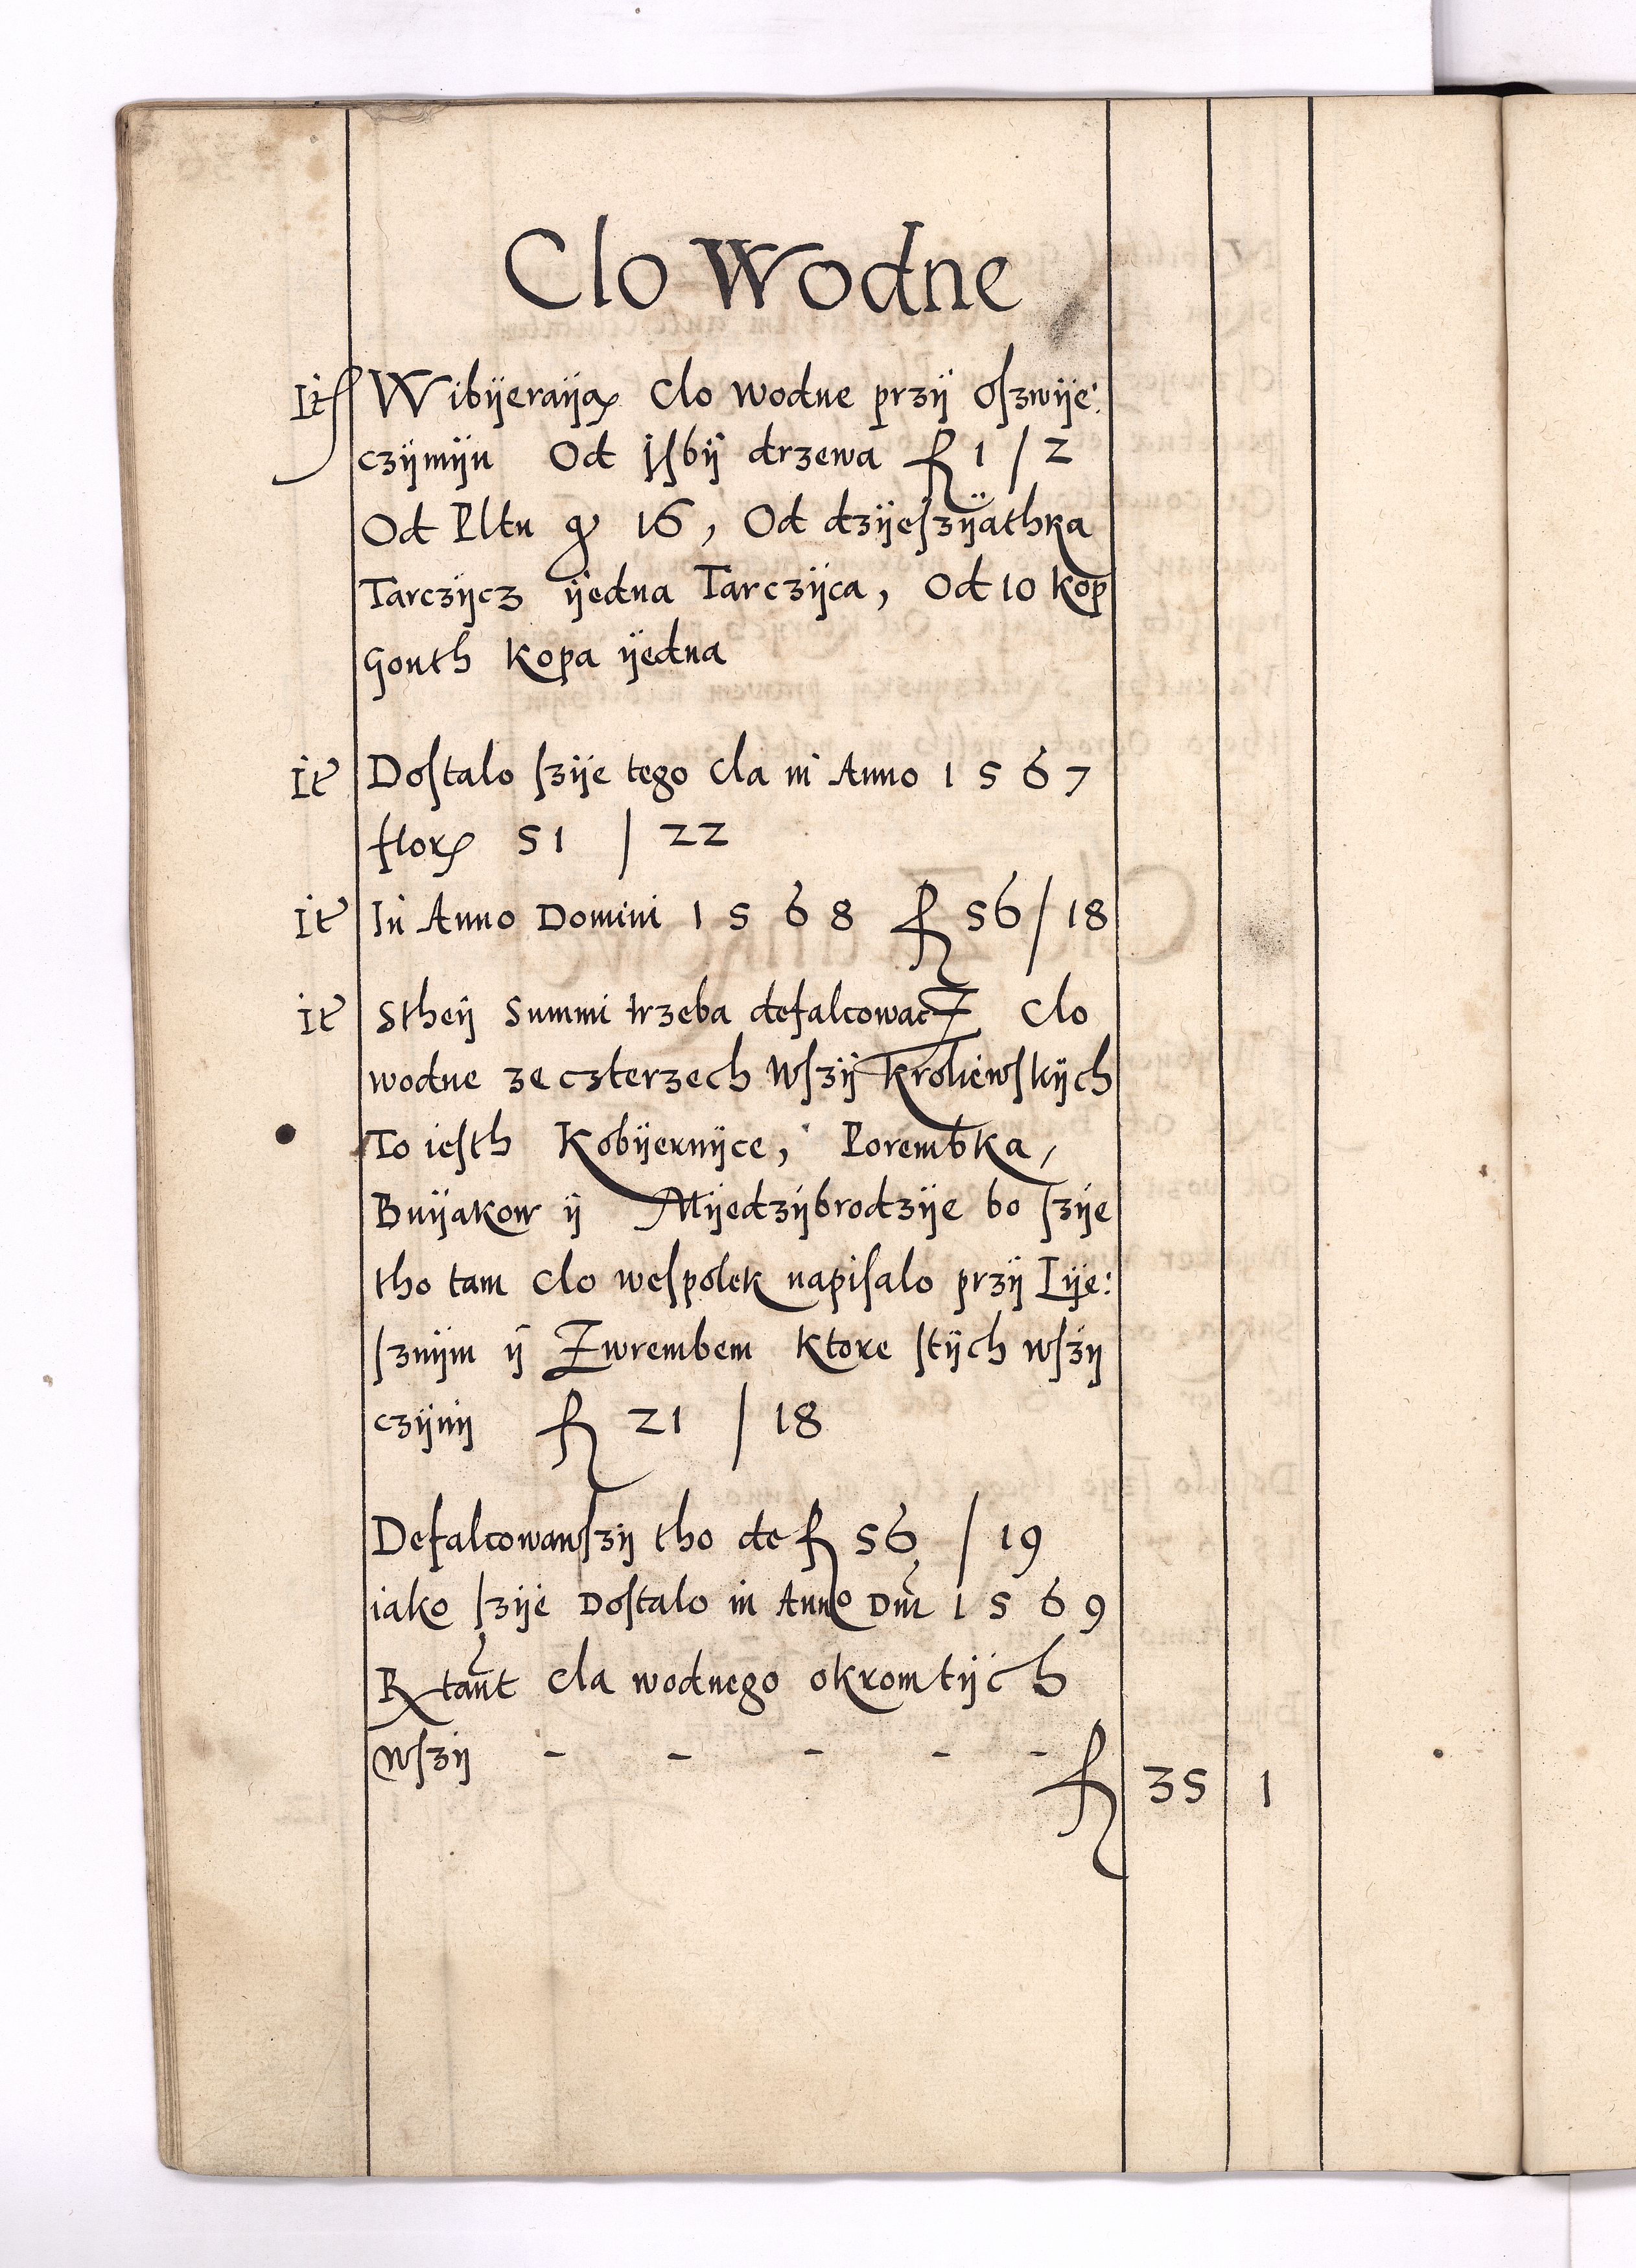 Clo Wodne
It Wibÿeraÿą Clo wodne przÿ Oſzwÿe:
czÿmÿu Od Jſbÿ drzewa fl 1 / 2
Od Pltu gͬ 16, Od dzÿeſzÿathka
Tarczÿcz ÿedna Tarczÿca, Od 10 kop
Gonth kopa ÿedna
It Doſtalo ſzÿe tego Cla in Anno 1567
flor 51 / 22
It In Anno Domini 1568 fl 56 / 18
It Stheÿ Summi trzeba defalcowacz Clo
wodne ze czterzech Wſzÿ kroliewſkÿch
To ieſth Kobÿernÿce, Porembka,
Buÿakow ÿ Mÿedzÿbrodzÿe bo ſzÿe
tho tam clo weſpolek napiſalo przÿ Lÿe:
ſznÿm ÿ Zwrembem ktore ſtÿch wſzÿ
czÿnÿ fl 21 / 18
Defalcowawſzÿ tho de fl 56 / 19
iako ſzÿe Doſtalo in Anno Dni 1569
Rtant cla wodnego okrom tÿch
wſzÿ - - - - - fl 35 1